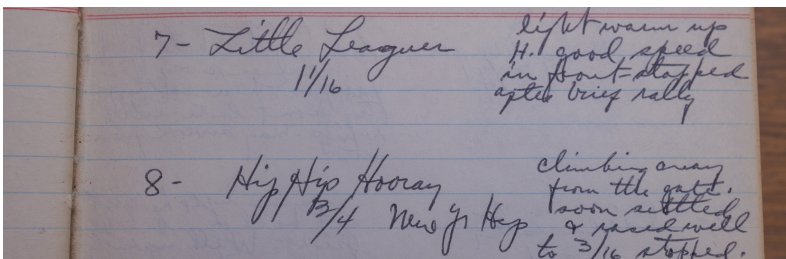 7- Little Leaguer
1 1/16
light warm up
H. good speed
in front-stopped
after brief rally
8- Hip Hip Hooray
3/4 New Yr Hcp
climbing away
from the gate.
soon settled
& raced well
to 3/16 stopped.